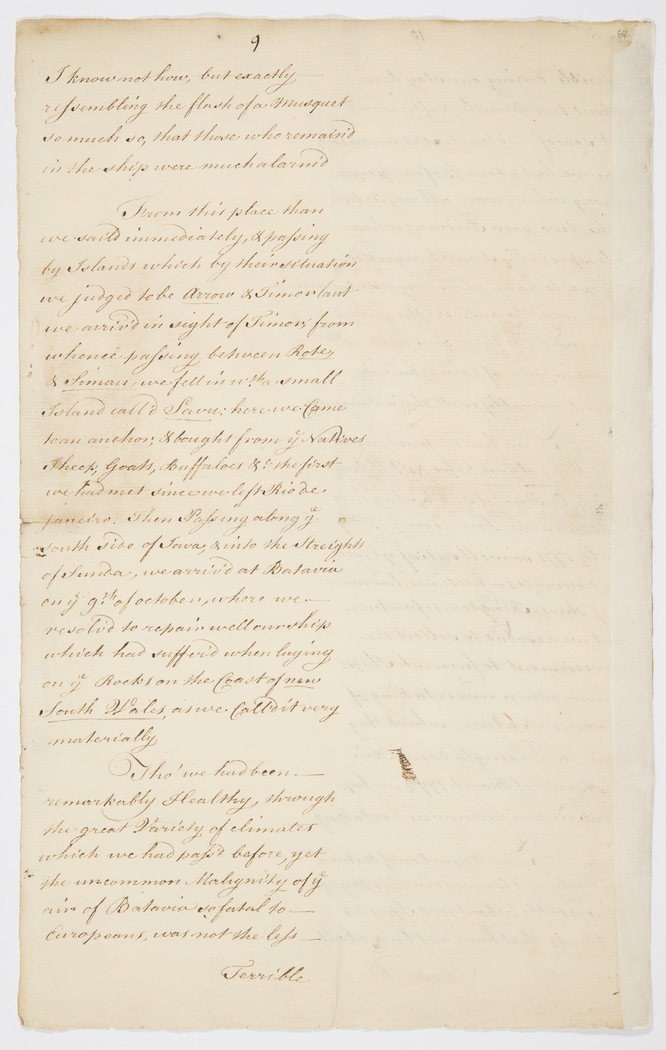 9
I know not how, but exactly
ressembling the flash of a Musquet
so much so, that those who remain'd
in the ship were much alarm'd
From this place than
we sail'd immediately, & passing
by Islands which by their situation
we judged to be Arrow & Timor laut
we arriv'd in sight of Timor, from
whence passing between Rote,
& Simau we fell in wth a small
Island call'd Savu: here we Came
to an anchor; & bought from ye Natives
Sheep, Goats, Buffaloes &c the first
we had met since we left Rio de
janeiro. Then Passing along ye
south side of Java, & into the Streights
of Sunda, we arriv'd at Batavia
on ye 9th of october, where we
resolv'd to repair well our ship
which had suffer'd when laying
on ye Rocks on the Coast of new
South Wales, as we Call'd it very
materially
Tho' we had been
remarkably Healthy, through
the great Variety of climates
which we had pass'd before, yet
the uncommon Malignity of ye
air of Batavia so fatal to
Europeans, was not the less
Terrible